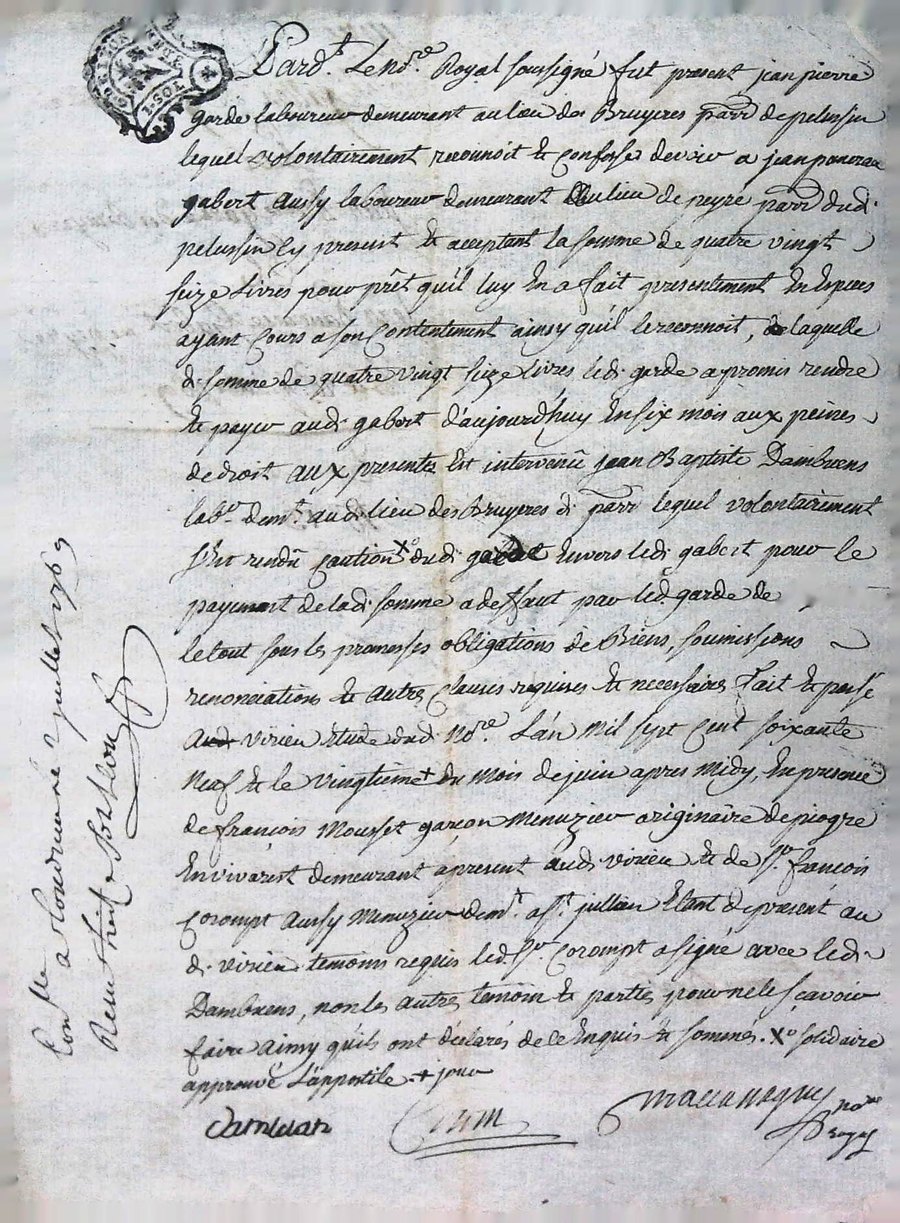 Pard.t Le no.re Royal soussigné fut present jean pierre
garde laboureur demeurant au lieu des Bruyeres parr. de pelussin
lequel volontairement reconnoit & confesse devoir a jean
gabert aussy laboureur demeurant au lieu de peyre parr. dud.
pelussin Cy present & acceptant la somme de quatre vingt
seize Livres pour prêt qu'il luy En a fait presentement En Especes
ayant Cours a son Contentement ainsy qu'il le reconnoit, de laquelle
d. somme de quatre vingt seize Livres led. garde a promis rendre
& payer aud. gabert d'aujourd'huy En six mois aux peines
de droit aux presentes Est intervenû jean Baptiste Dambuens
lab.r dem.t aud. lieu des Bruyeres d. parr. lequel volontairement
s'est rendû Caution Xo dud. garde Envers led. gabert pour le
payement de lad. somme a deffaut par led. garde de
le tout sous les promesses obligations de Biens, soumissions
renonciations & autres Clauses requises & necessaires fait & passé
Aud. virieu Etude dud. No.re L'an Mil sept Cent soixante
Neuf & le vingtieme + du Mois de juin apres Midy, En presence
de françois Mousset garçon Menuzier originaire de
En vivarest demeurant apresent aud. virieu & de S.r françois
Corompt aussy Menuzier dem.t a S.t jullien Etant de present au
d. virieu temoins requis led. S.r Corompt a signé avec led.
Dambuens, non les autres temoin & parties pour ne le sçavoir
faire ainsy qu'ils ont déclarés de ce Enquis & sommés. Xo solidaire
approuvé L'appostile. + jour
no.re
Royal
Con.lle
a Condrieu ce 2 juillet 1769